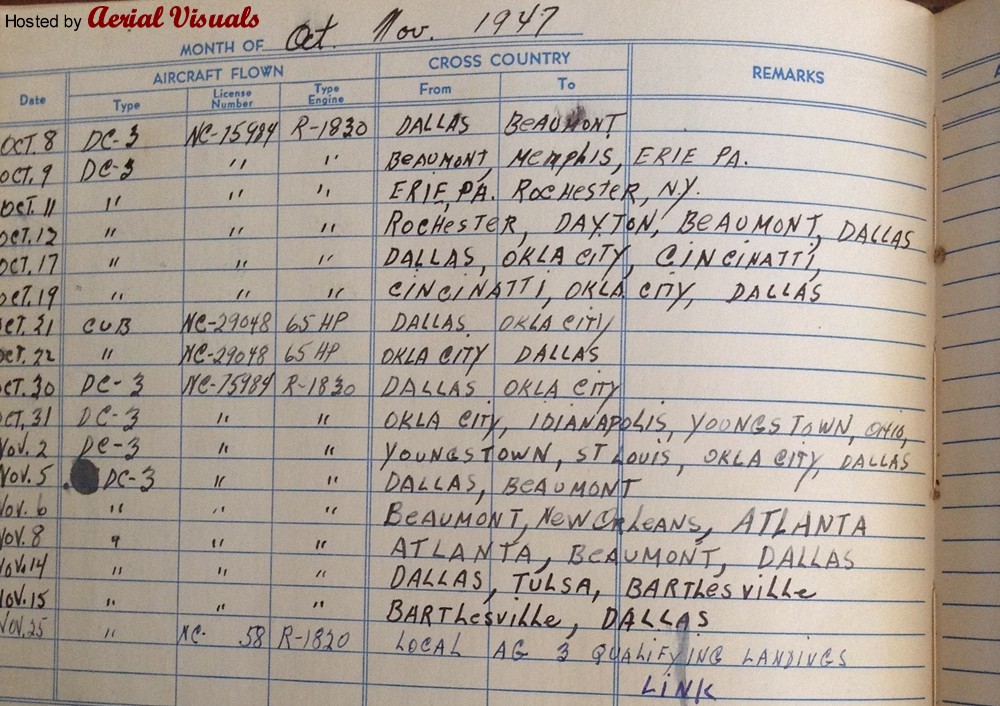 Hosted by Aerial Visuals
MONTH OF Oct. Nov. 1947
AIRCRAFT FLOWN CROSS COUNTRY REMARKS
Date Type License Number Type Engine From To
OCT. 8 DC-3 NC-15984 R-1830 DALLAS BEAUMONT
OCT. 9 DC-3 " " BEAUMONT, MEMPHIS, ERIE PA.
OCT. 11 " " " ERIE, PA. ROCHESTER, N.Y.
OCT. 12 " " " ROCHESTER, DAYTON, BEAUMONT, DALLAS
OCT. 17 " " " DALLAS, OKLA CITY, CINCINATTI,
OCT. 19 " " " CINCINATTI, OKLA CITY, DALLAS
OCT. 21 CUB NC-29048 65 HP DALLAS OKLA CITY
OCT. 22 " NC-29048 65 HP OKLA CITY DALLAS
OCT. 30 DC-3 NC-15984 R-1830 DALLAS OKLA CITY
OCT. 31 DC-3 " " OKLA CITY, IDIANAPOLIS, YOUNGSTOWN, OHIO,
NOV. 2 DC-3 " " YOUNGSTOWN, ST LOUIS, OKLA CITY, DALLAS
NOV. 5 DC-3 " " DALLAS, BEAUMONT
NOV. 6 " " " BEAUMONT, NEW ORLEANS, ATLANTA
NOV. 8 " " " ATLANTA, BEAUMONT, DALLAS
NOV. 14 " " " DALLAS, TULSA, BARTHESVILLE
NOV. 15 " " " BARTHESVILLE, DALLAS
NOV. 25 " NC- 58 R-1820 LOCAL AG 3 QUALIFYING LANDINGS
LINK